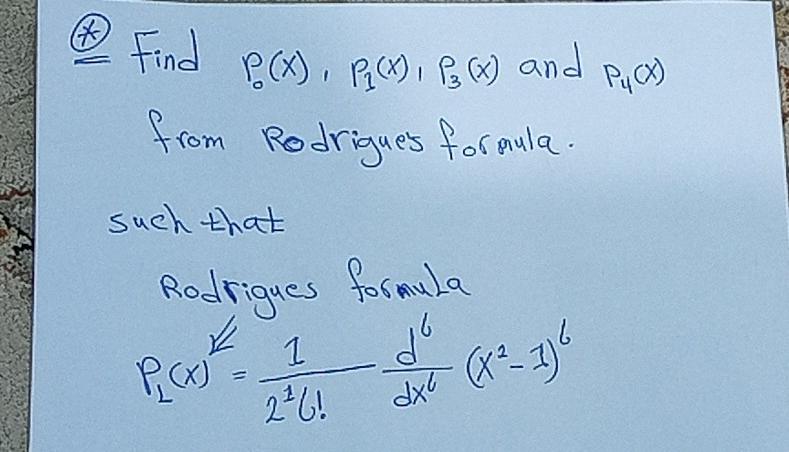 * Find P₀(x), P₁(x), P₃(x) and P₄(x)
from Rodrigues formula.
such that
Rodrigues formula
P_L(x) = \frac{1}{2^1 6!} \frac{d^6}{dx^6} (x² - 1)^6